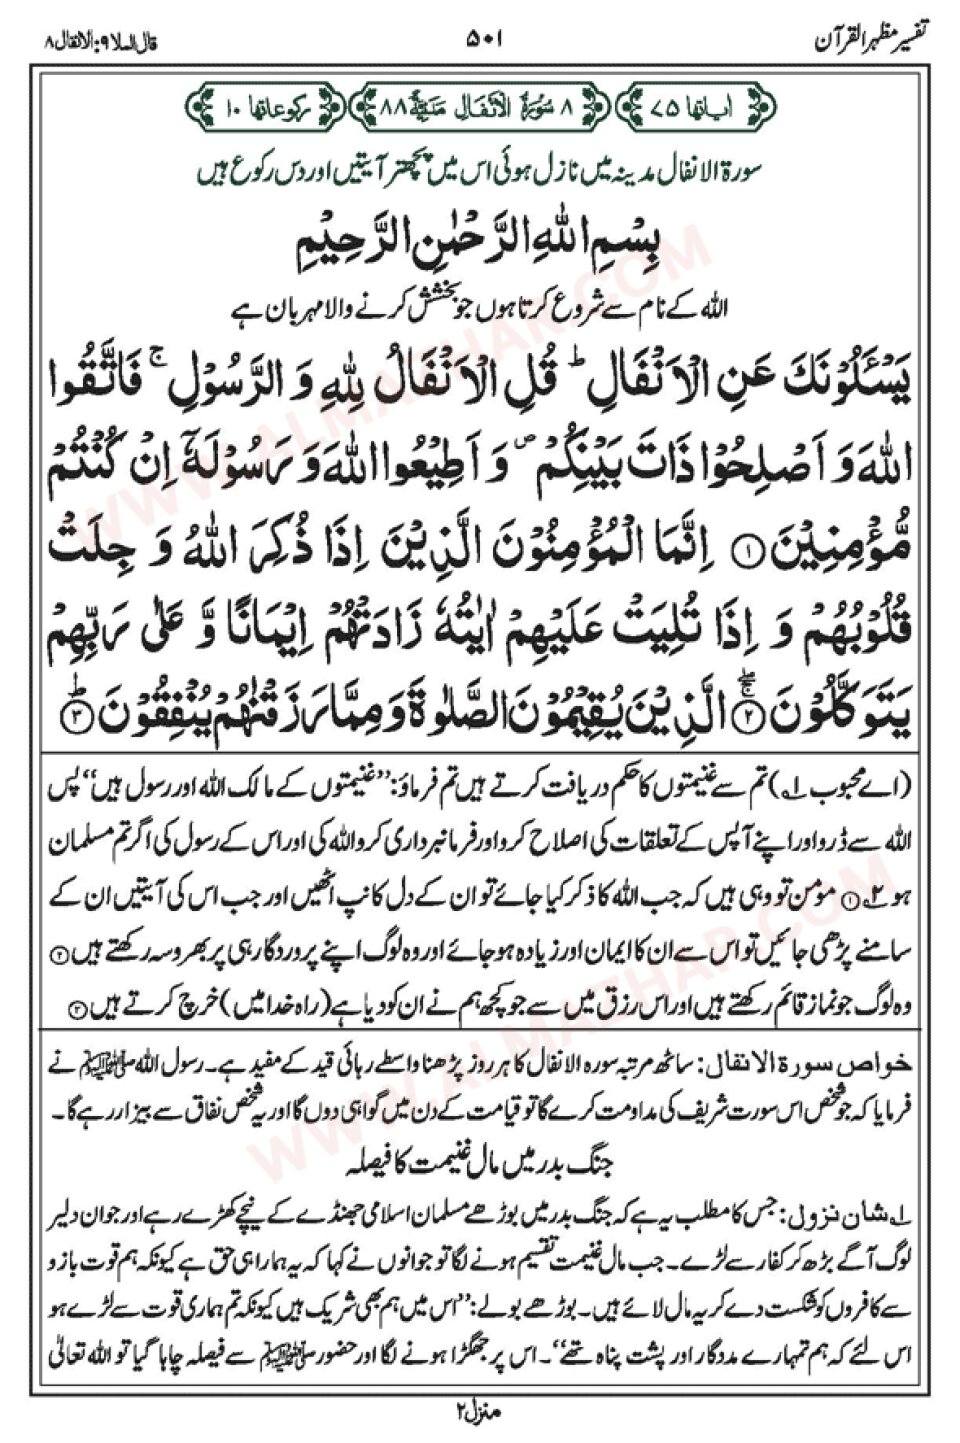 تفسیر مظہر القرآن
۵۰۱
قال الملا ۹: الانفال ۸
اٰیاتها ۷۵
۸ سُوْرَةُ الْاَنْفَالِ مَدَنِيَّةٌ ۸۸
رکوعاتها ۱۰
سورۃ الانفال مدینہ میں نازل ہوئی اس میں پچھتر آیتیں اور دس رکوع ہیں
بِسْمِ اللهِ الرَّحْمٰنِ الرَّحِيْمِ
اللہ کے نام سے شروع کرتا ہوں جو بخشش کرنے والا مہربان ہے
يَسْـَٔلُوْنَكَ عَنِ الْاَنْفَالِ ؕ قُلِ الْاَنْفَالُ لِلّٰهِ وَ الرَّسُوْلِ ۚ فَاتَّقُوا
اللهَ وَ اَصْلِحُوْا ذَاتَ بَيْنِكُمْ ۪ وَ اَطِيْعُوا اللهَ وَ رَسُوْلَهٗۤ اِنْ كُنْتُمْ
مُّؤْمِنِيْنَ ۝۱ اِنَّمَا الْمُؤْمِنُوْنَ الَّذِيْنَ اِذَا ذُكِرَ اللهُ وَ جِلَتْ
قُلُوْبُهُمْ وَ اِذَا تُلِيَتْ عَلَيْهِمْ اٰيٰتُهٗ زَادَتْهُمْ اِيْمَانًا وَّ عَلٰى رَبِّهِمْ
يَتَوَكَّلُوْنَ ۝۲ۚۖ الَّذِيْنَ يُقِيْمُوْنَ الصَّلٰوةَ وَ مِمَّا رَزَقْنٰهُمْ يُنْفِقُوْنَ ۝۳ؕ
(اے محبوب ۱؎) تم سے غنیمتوں کا حکم دریافت کرتے ہیں تم فرماؤ: ’’غنیمتوں کے مالک اللہ اور رسول ہیں‘‘ پس
اللہ سے ڈرو اور اپنے آپس کے تعلقات کی اصلاح کرو اور فرمانبرداری کرو اللہ کی اور اس کے رسول کی اگر تم مسلمان
ہو ۲؎ ۝۱ مؤمن تو وہی ہیں کہ جب اللہ کا ذکر کیا جائے تو ان کے دل کانپ اٹھیں اور جب اس کی آیتیں ان کے
سامنے پڑھی جائیں تو اس سے ان کا ایمان اور زیادہ ہو جائے اور وہ لوگ اپنے پروردگار ہی پر بھروسہ رکھتے ہیں ۝۲
وہ لوگ جو نماز قائم رکھتے ہیں اور اس رزق میں سے جو کچھ ہم نے ان کو دیا ہے (راہ خدا میں) خرچ کرتے ہیں ۝۳
خواص سورۃ الانفال: ساٹھ مرتبہ سورہ الانفال کا ہر روز پڑھنا واسطے رہائی قید کے مفید ہے۔ رسول اللہ ﷺ نے
فرمایا کہ جو شخص اس سورت شریف کی مداومت کرے گا تو قیامت کے دن میں گواہی دوں گا اور یہ شخص نفاق سے بیزار رہے گا۔
جنگ بدر میں مال غنیمت کا فیصلہ
۱؎ شان نزول: جس کا مطلب یہ ہے کہ جنگ بدر میں بوڑھے مسلمان اسلامی جھنڈے کے نیچے کھڑے رہے اور جوان دلیر
لوگ آگے بڑھ کر کفار سے لڑے۔ جب مال غنیمت تقسیم ہونے لگا تو جوانوں نے کہا کہ یہ ہمارا ہی حق ہے کیونکہ ہم قوت بازو
سے کافروں کو شکست دے کر یہ مال لائے ہیں۔ بوڑھے بولے: ’’اس میں ہم بھی شریک ہیں کیونکہ تم ہماری قوت سے لڑے ہو
اس لئے کہ ہم تمہارے مددگار اور پشت پناہ تھے‘‘۔ اس پر جھگڑا ہونے لگا اور حضور ﷺ سے فیصلہ چاہا گیا تو اللہ تعالیٰ
منزل ۲
WWW.ALMAZHAR.COM
WWW.ALMAZHAR.COM